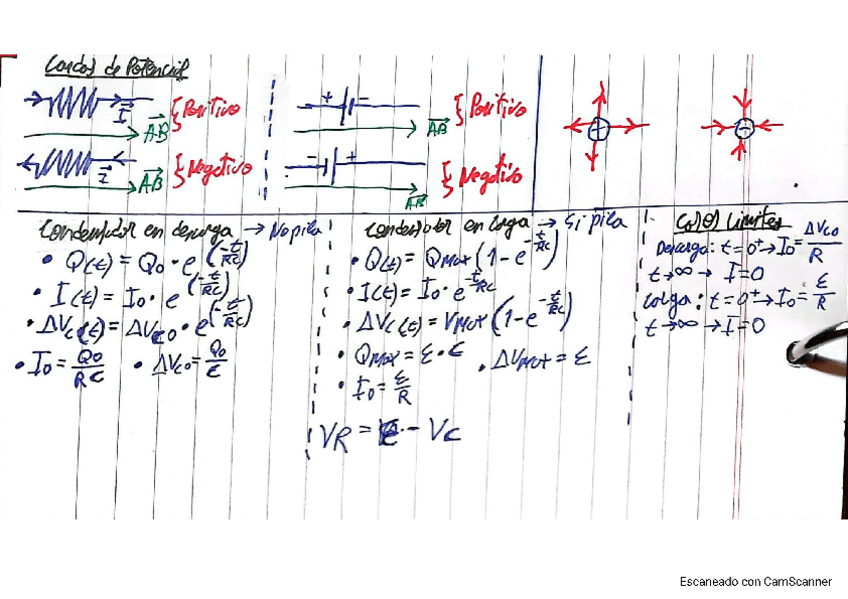 Caidas de Potencial
I⃗ AB⃗ } Positivo
I⃗ AB⃗ } Negativo
+ − AB⃗ } Positivo
− + AB⃗ } Negativo
+
−
Condensador en descarga → No pila
• Q(t) = Q0 • e^(-t/RC)
• I(t) = I0 • e^(-t/RC)
• ΔVc(t) = ΔVc0 • e^(-t/RC)
• I0 = Q0/RC • ΔVc0 = Q0/C
Condensador en carga → Si pila
• Q(t) = QMax (1 - e^(-t/RC))
• I(t) = I0 • e^(-t/RC)
• ΔVc(t) = VMax (1 - e^(-t/RC))
• QMax = ε • C • ΔVMax = ε
• I0 = ε/R
VR = ε - Vc
Casos Limites
Descarga: t = 0⁺ → I0 = ΔVc0/R
t → ∞ → I = 0
Carga: t = 0⁺ → I0 = ε/R
t → ∞ → I = 0
Escaneado con CamScanner